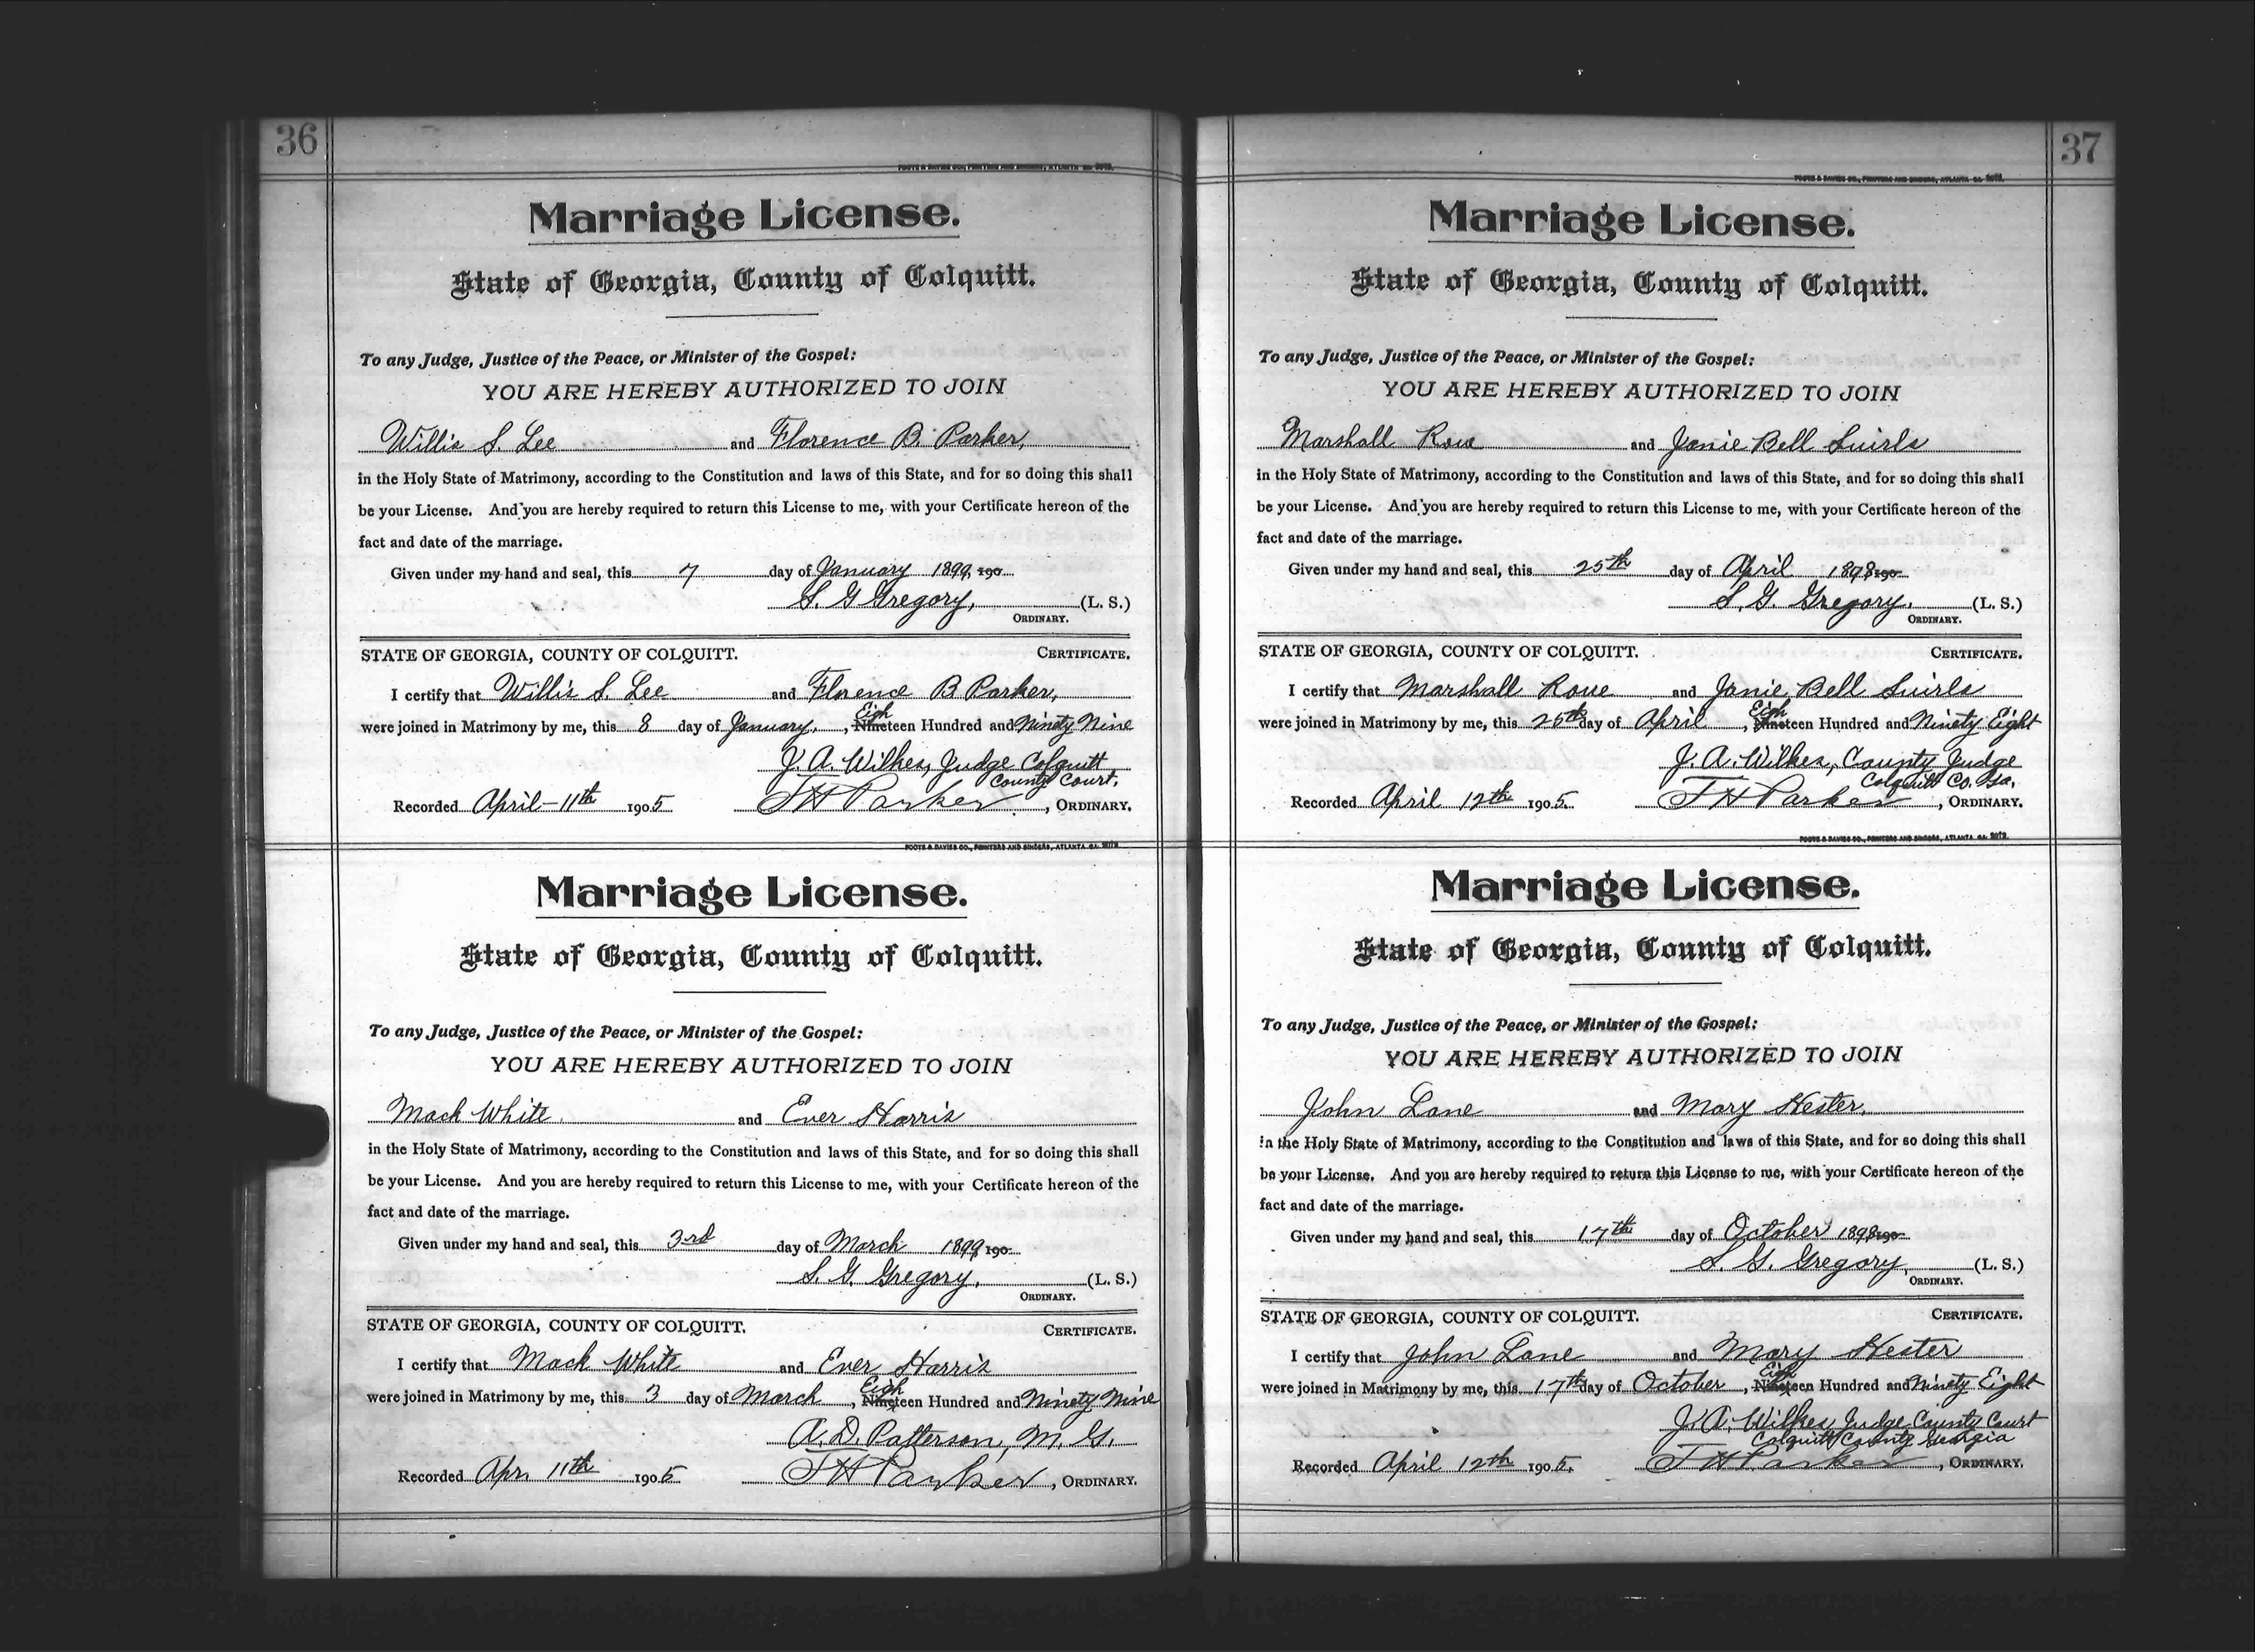 36
FOOTE & DAVIES CO., PRINTERS AND BINDERS, ATLANTA, GA.
Marriage License.
State of Georgia, County of Colquitt.
To any Judge, Justice of the Peace, or Minister of the Gospel:
YOU ARE HEREBY AUTHORIZED TO JOIN
Willis S. Lee and Florence B. Parker,
in the Holy State of Matrimony, according to the Constitution and laws of this State, and for so doing this shall
be your License. And you are hereby required to return this License to me, with your Certificate hereon of the
fact and date of the marriage.
Given under my hand and seal, this 7 day of January 1899, 190
S. G Gregory, (L. S.)
ORDINARY.
STATE OF GEORGIA, COUNTY OF COLQUITT. CERTIFICATE.
I certify that Willis S. Lee and Florence B Parker,
were joined in Matrimony by me, this 8 day of January, , Eighteen Hundred and Ninety Nine
J. A. Wilkes, Judge Colquitt
County Court.
Recorded April - 11th 1905 T H Parker , ORDINARY.
FOOTE & DAVIES CO., PRINTERS AND BINDERS, ATLANTA, GA.
Marriage License.
State of Georgia, County of Colquitt.
To any Judge, Justice of the Peace, or Minister of the Gospel:
YOU ARE HEREBY AUTHORIZED TO JOIN
Mack White and Ever Harris
in the Holy State of Matrimony, according to the Constitution and laws of this State, and for so doing this shall
be your License. And you are hereby required to return this License to me, with your Certificate hereon of the
fact and date of the marriage.
Given under my hand and seal, this 3rd day of March 1899, 190
S. G. Gregory, (L. S.)
ORDINARY.
STATE OF GEORGIA, COUNTY OF COLQUITT. CERTIFICATE.
I certify that Mack White and Ever Harris
were joined in Matrimony by me, this 3 day of March , Eighteen Hundred and Ninety Nine
A. D. Patterson, M. G.
Recorded Apr. 11th 1905 T H Parker , ORDINARY.
37
FOOTE & DAVIES CO., PRINTERS AND BINDERS, ATLANTA, GA.
Marriage License.
State of Georgia, County of Colquitt.
To any Judge, Justice of the Peace, or Minister of the Gospel:
YOU ARE HEREBY AUTHORIZED TO JOIN
Marshall Roue and Janie Bell Suirls
in the Holy State of Matrimony, according to the Constitution and laws of this State, and for so doing this shall
be your License. And you are hereby required to return this License to me, with your Certificate hereon of the
fact and date of the marriage.
Given under my hand and seal, this 25th day of April 1898, 190
S. G. Gregory. (L. S.)
ORDINARY.
STATE OF GEORGIA, COUNTY OF COLQUITT. CERTIFICATE.
I certify that Marshall Roue and Janie Bell Suirls
were joined in Matrimony by me, this 25th day of April , Eighteen Hundred and Ninety Eight
J. A. Wilkes, County Judge
Colquitt Co. Ga.
Recorded April 12th 1905. T H Parker , ORDINARY.
FOOTE & DAVIES CO., PRINTERS AND BINDERS, ATLANTA, GA.
Marriage License.
State of Georgia, County of Colquitt.
To any Judge, Justice of the Peace, or Minister of the Gospel:
YOU ARE HEREBY AUTHORIZED TO JOIN
John Lane and Mary Hester,
in the Holy State of Matrimony, according to the Constitution and laws of this State, and for so doing this shall
be your License. And you are hereby required to return this License to me, with your Certificate hereon of the
fact and date of the marriage.
Given under my hand and seal, this 17th day of October 1898, 190
S. G. Gregory, (L. S.)
ORDINARY.
STATE OF GEORGIA, COUNTY OF COLQUITT. CERTIFICATE.
I certify that John Lane and Mary Hester
were joined in Matrimony by me, this 17th day of October , Eighteen Hundred and Ninety Eight
J. A. Wilkes, Judge County Court
Colquitt County Georgia
Recorded April 12th 1905. T H Parker , ORDINARY.